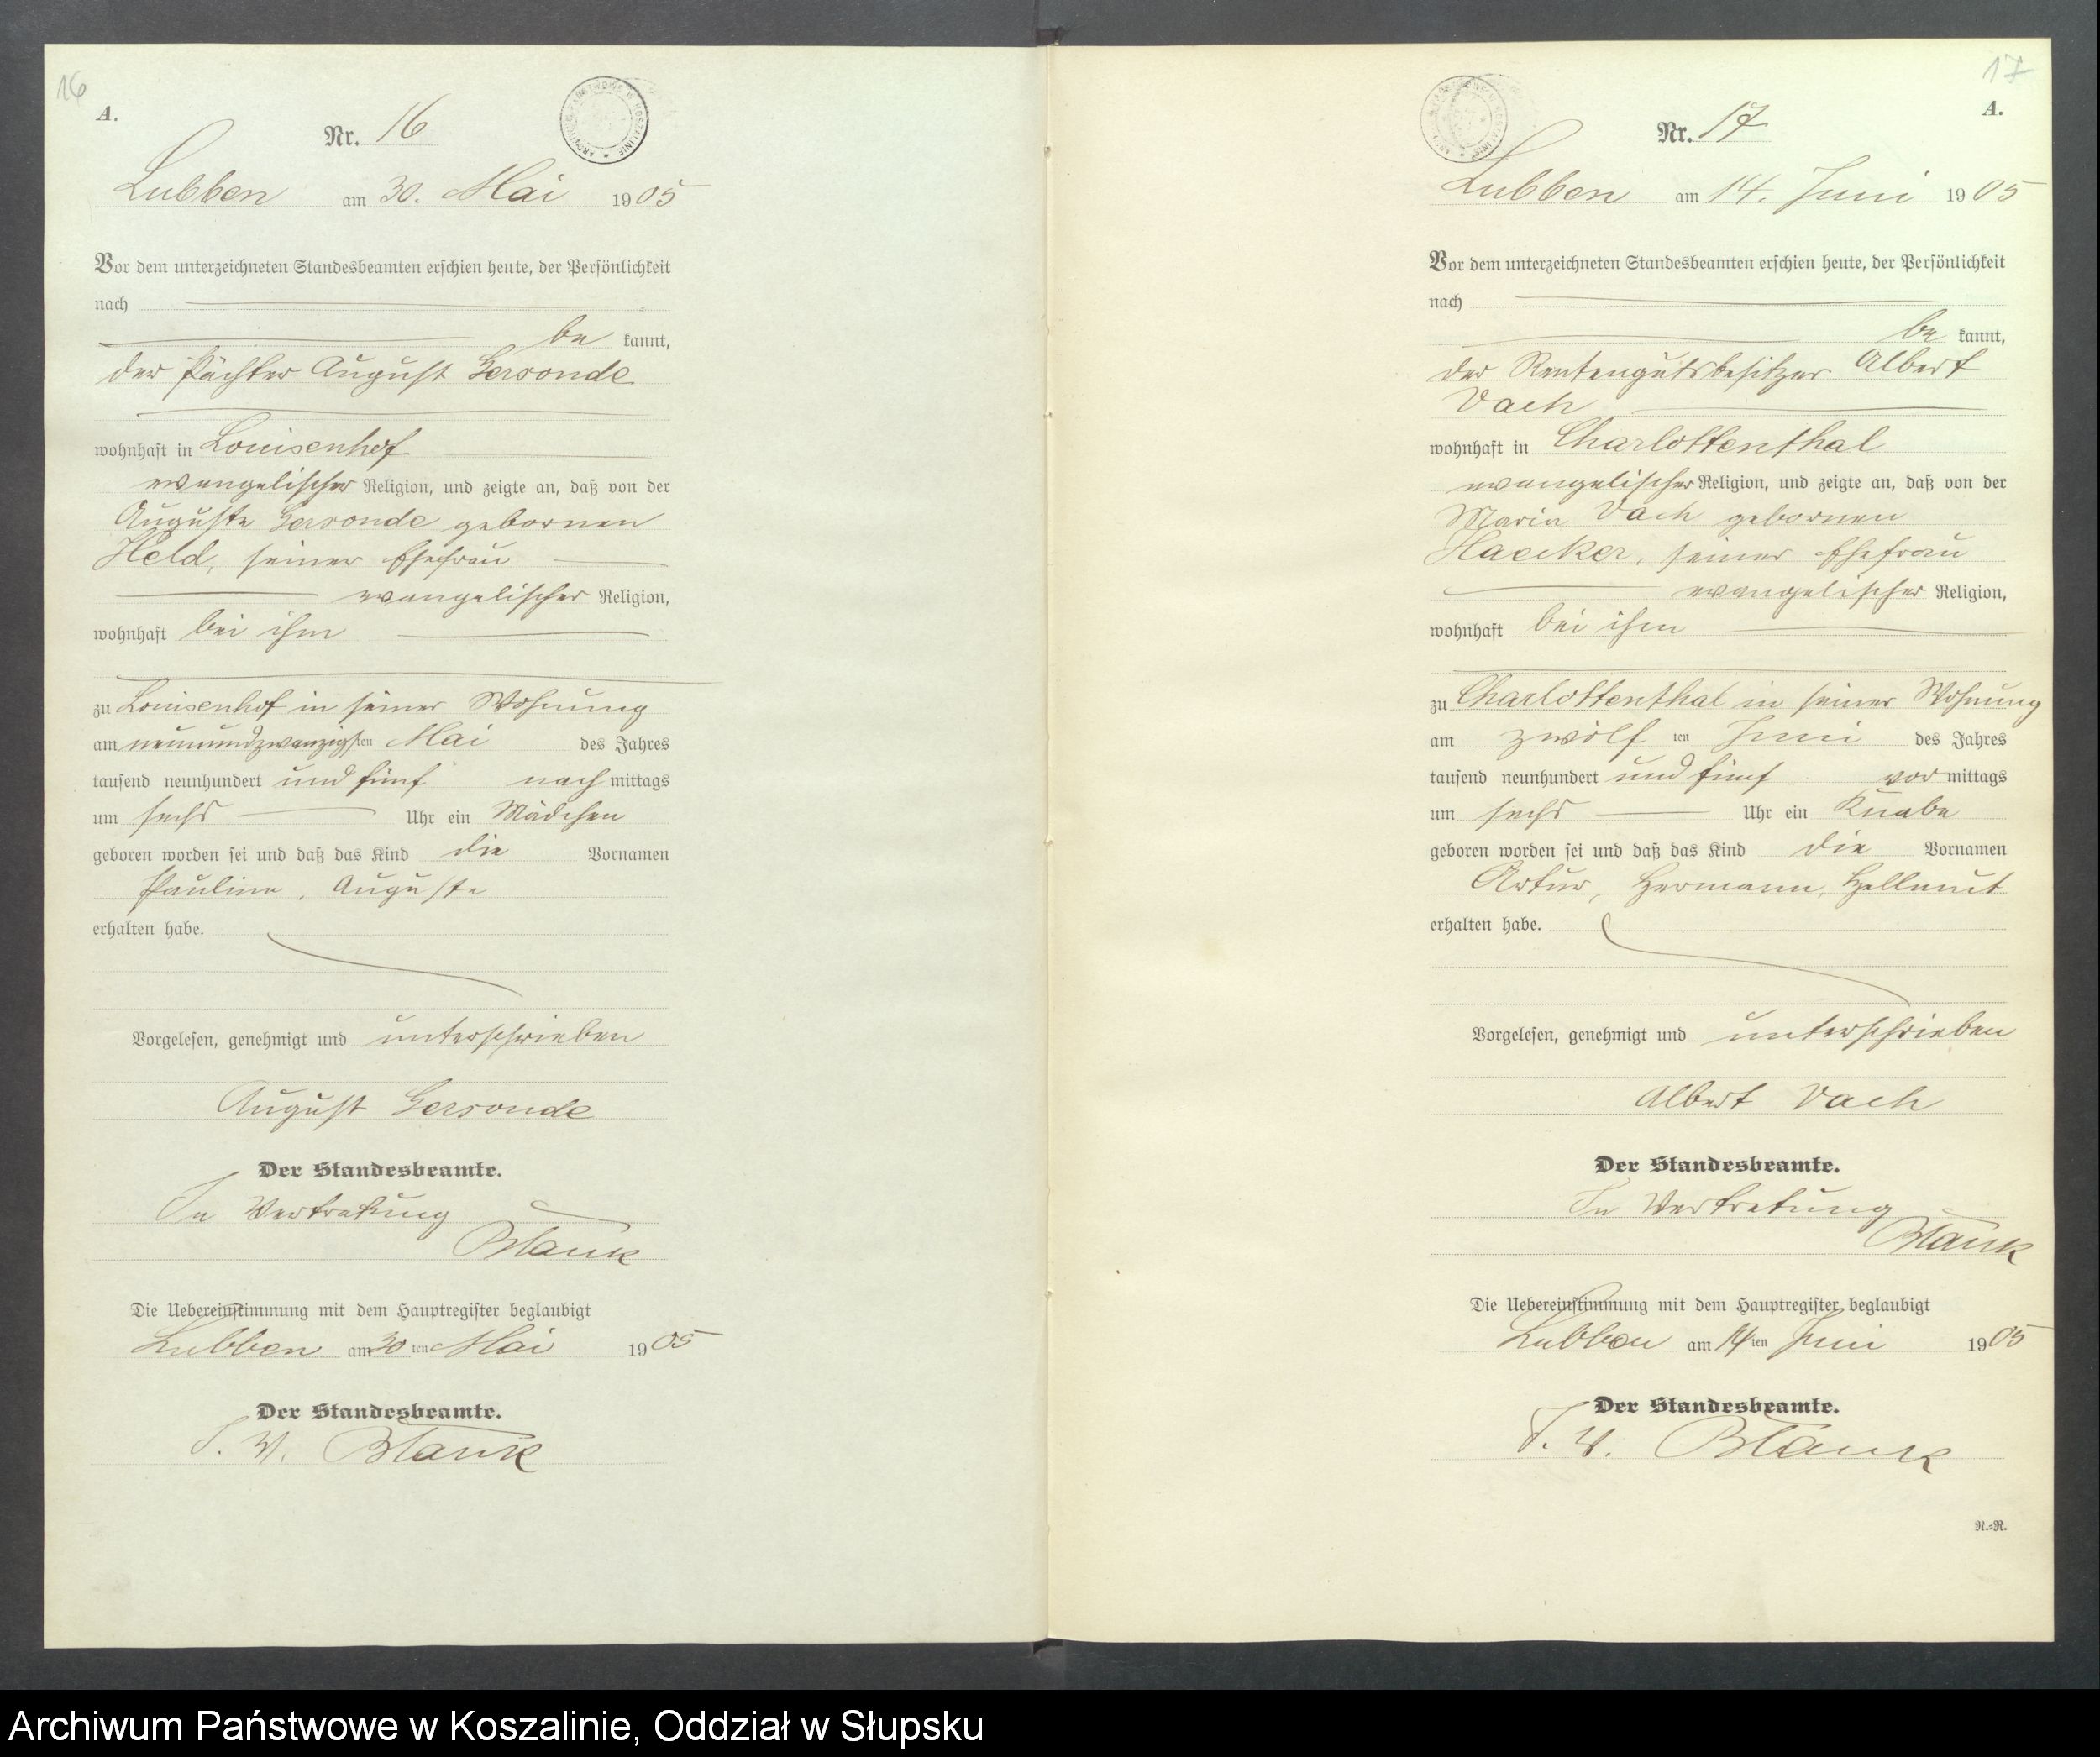 16
A.
Nr. 16
Lubben am 30. Mai 1905
Vor dem unterzeichneten Standesbeamten erschien heute, der Persönlichkeit
nach
be kannt,
der Pächter August Gersonde
wohnhaft in Louisenhof
evangelischer Religion, und zeigte an, daß von der
Auguste Gersonde gebornen
Held, seiner Ehefrau
evangelischer Religion,
wohnhaft bei ihm
zu Louisenhof in seiner Wohnung
am neunundzwanzigsten Mai des Jahres
tausend neunhundert und fünf nach mittags
um sechs Uhr ein Mädchen
geboren worden sei und daß das Kind die Vornamen
Pauline, Auguste
erhalten habe.
Vorgelesen, genehmigt und unterschrieben
August Gersonde
Der Standesbeamte.
In Vertretung
Blank
Die Uebereinstimmung mit dem Hauptregister beglaubigt
Lubben am 30 ten Mai 1905
Der Standesbeamte.
I. V. Blank
17
A.
Nr. 17
Lubben am 14. Juni 1905
Vor dem unterzeichneten Standesbeamten erschien heute, der Persönlichkeit
nach
be kannt,
der Rentengutsbesitzer Albert
Vach
wohnhaft in Charlottenthal
evangelischer Religion, und zeigte an, daß von der
Maria Vach gebornen
Haecker, seiner Ehefrau
evangelischer Religion,
wohnhaft bei ihm
zu Charlottenthal in seiner Wohnung
am zwölf ten Juni des Jahres
tausend neunhundert und fünf vor mittags
um sechs Uhr ein Knabe
geboren worden sei und daß das Kind die Vornamen
Artur, Hermann, Hellmut
erhalten habe.
Vorgelesen, genehmigt und unterschrieben
Albert Vach
Der Standesbeamte.
In Vertretung
Blank
Die Uebereinstimmung mit dem Hauptregister beglaubigt
Lubben am 14 ten Juni 1905
Der Standesbeamte.
I. V. Blank
R.=R.
Archiwum Państwowe w Koszalinie, Oddział w Słupsku